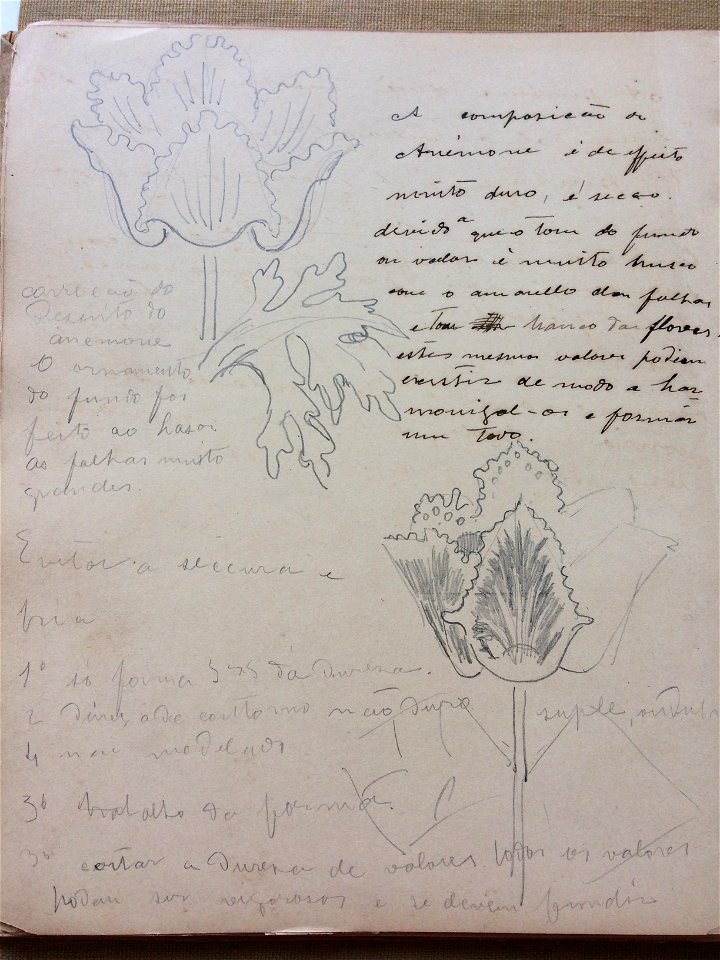 A composição do
Anémone é de effeito
muito duro, é secco.
devido a que o tom do fundo
ou valor é muito brusco
com o amarello das folhas
e tom branco das flores.
estes mesmos valores podem
existir de modo a har
monizal-os e formar
um todo.
correcção do
Desenho do
anémone
O ornamento
do fundo foi
feito ao hasor
as folhas muito
grandes.
Evitar a seccura e
fria
1º só forma da Dureza.
2 contorno não duro suple,
4 não modelado
3º trabalho da forma.
3º evitar a Dureza de valores todos os valores
podem ser vigorosos e se devem fundir